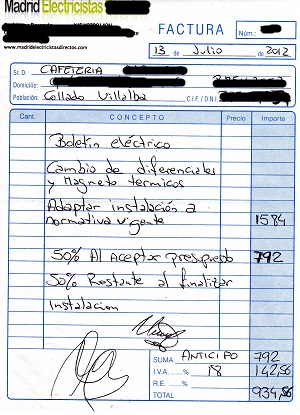 Madrid Electricistas
www.madridelectricistasdirectos.com
FACTURA
Núm.:
13 de Julio de 2012
Sr. D. CAFETERIA
Domicilio:
Población: Collado Villalba C.I.F./D.N.I.
Cant. CONCEPTO Precio Importe
Boletin eléctrico
Cambio de diferenciales
y Magneto termicos
Adaptar instalación a
normativa vigente 1584
50% Al Aceptar presupuesto 792
50% Restante al finalizar
instalacion
SUMA ANTICIPO 792
I.V.A. ...... % 18 142,56
R.E. ...... %
TOTAL 934,56